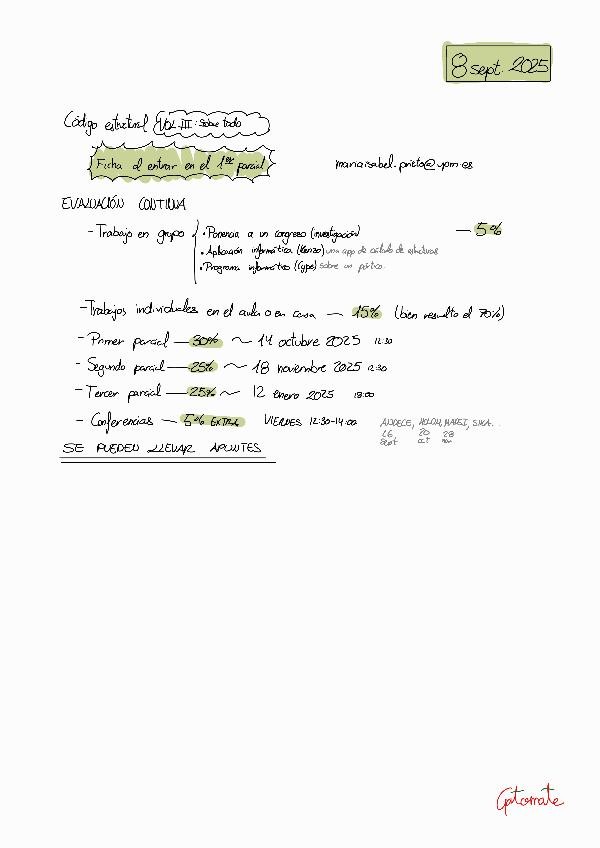 8 sept. 2025
Código estructural VOL. III: sobre todo
Ficha al entrar en el 1er parcial
mariaisabel.prieto@upm.es
EVALUACIÓN CONTINUA
- Trabajo en grupo
• Ponencia a un congreso (investigación) — 5%
• Aplicación informática (Kenzo) una app de cálculo de estructuras
• Programa informático (Cype) sobre un pórtico.
- Trabajos individuales en el aula o en casa — 15% (bien resulto el 70%)
- Primer parcial — 30% ~ 14 octubre 2025 12:30
- Segundo parcial — 25% ~ 18 noviembre 2025 12:30
- Tercer parcial — 25% ~ 12 enero 2025
- Conferencias — 5% EXTRA VIERNES 12:30-14:00 ANDECE, HOLCIM, MAPEI, SIKA..
26 20 28
sept oct nov
SE PUEDEN LLEVAR APUNTES